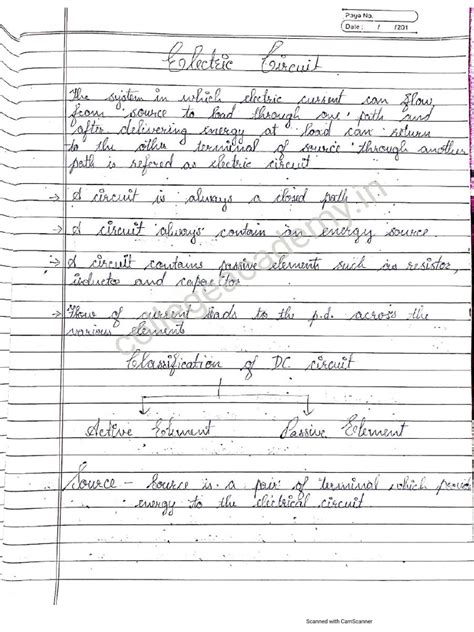 Page No.
Date : / /201
Electric Circuit
The system in which electric current can flow
from source to load through one path and
after delivering energy at load can return
to the other terminal of source through another
path is refered as electric circuit
→ A circuit is always a closed path
→ A circuit always contain an energy source.
→ A circuit contains passive elements such as resistor,
inductor and capacitor
→ Flow of current leads to the p.d. across the
various elements
Classification of DC circuit
Active Element Passive Element
Source – Source is a pair of terminal which
energy to the electrical circuit
collegeacademy.in
Scanned with CamScanner